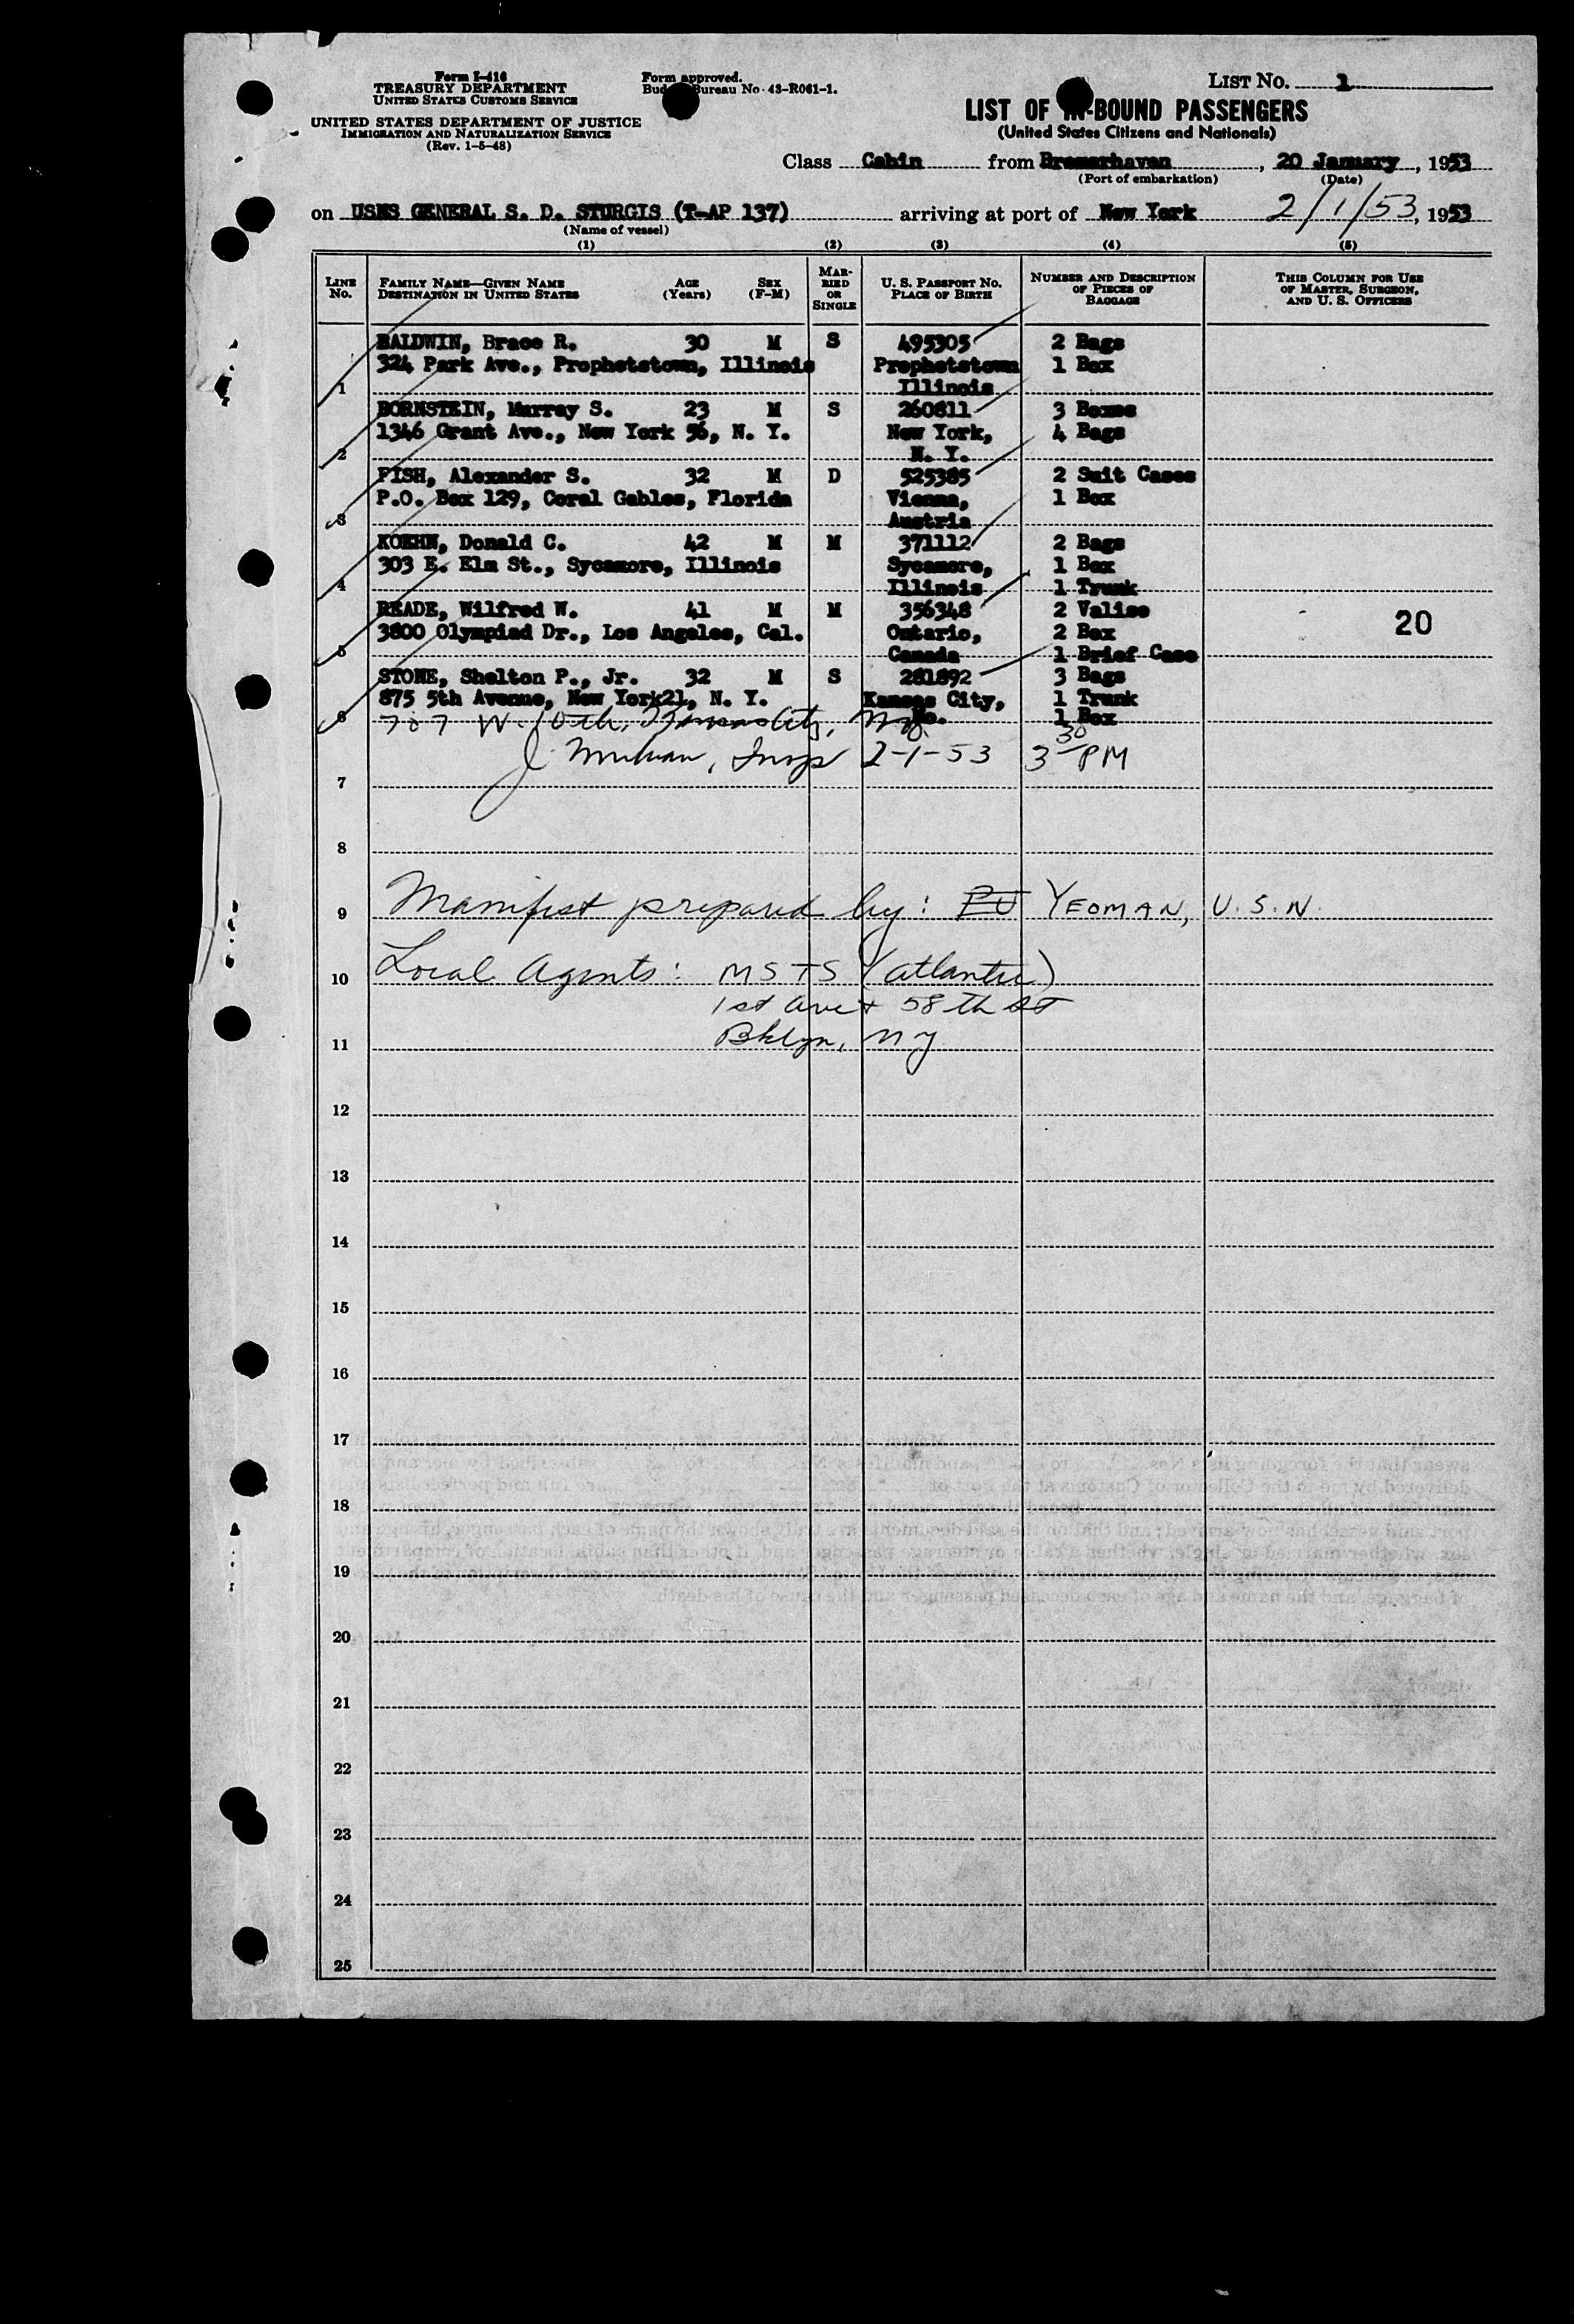 Form I-416
TREASURY DEPARTMENT
UNITED STATES CUSTOMS SERVICE
UNITED STATES DEPARTMENT OF JUSTICE
IMMIGRATION AND NATURALIZATION SERVICE
(Rev. 1-5-48)
Form approved.
Budget Bureau No. 43-R061-1.
LIST NO. 1
LIST OF IN-BOUND PASSENGERS
(United States Citizens and Nationals)
Class Cabin from Bremerhaven, 20 January, 1953
(Port of embarkation) (Date)
on USNS GENERAL S. D. STURGIS (T-AP 137) arriving at port of New York 2/1/53, 1953
(Name of vessel)
(1) (2) (3) (4) (5)
LINE NO. FAMILY NAME—GIVEN NAME DESTINATION IN UNITED STATES AGE (Years) SEX (F-M) MARRIED OR SINGLE U. S. PASSPORT NO. PLACE OF BIRTH NUMBER AND DESCRIPTION OF PIECES OF BAGGAGE THIS COLUMN FOR USE OF MASTER, SURGEON, AND U. S. OFFICERS
BALDWIN, Brace R. 30 M S 495305 2 Bags
324 Park Ave., Prophetstown, Illinois Prophetstown 1 Box
1 Illinois
BORNSTEIN, Murray S. 23 M S 260811 3 Boxes
1346 Grant Ave., New York 56, N. Y. New York, 4 Bags
2 N. Y.
FISH, Alexander S. 32 M D 525385 2 Suit Cases
P.O. Box 129, Coral Gables, Florida Vienna, 1 Box
3 Austria
KOEHN, Donald C. 42 M M 371112 2 Bags
303 E. Elm St., Sycamore, Illinois Sycamore, 1 Box
4 Illinois 1 Trunk
READE, Wilfred W. 41 M M 356348 2 Valise
3800 Olympiad Dr., Los Angeles, Cal. Ontario, 2 Box 20
5 Canada 1 Brief Case
STONE, Shelton P., Jr. 32 M S 281892 3 Bags
875 5th Avenue, New York21, N. Y. Kansas City, 1 Trunk
6 Mo. 1 Box
707 W. 10th, Kansas City, Mo.
Insp 2-1-53 3 30 PM
7
8
9 Manifest prepared by: YEOMAN, U.S.N.
10 Local Agents: MSTS (Atlantic)
1st Ave & 58th St
11 Bklyn, NY
12
13
14
15
16
17
18
19
20
21
22
23
24
25